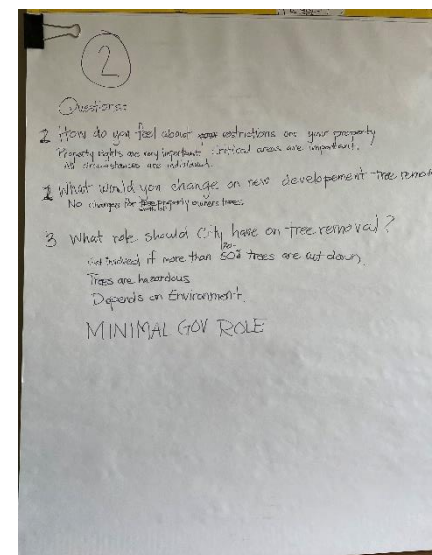 2
Questions:
2 How do you feel about restrictions on your property
Property rights are very important critical areas are important.
All circumstances are individual.
1 What would you change on new developement tree remov
No changes for property owners trees.
3 What role should City have on tree removal?
Get involved if more than 50% trees are cut down.
Trees are hazardous
Depends on Environment.
MINIMAL GOV ROLE